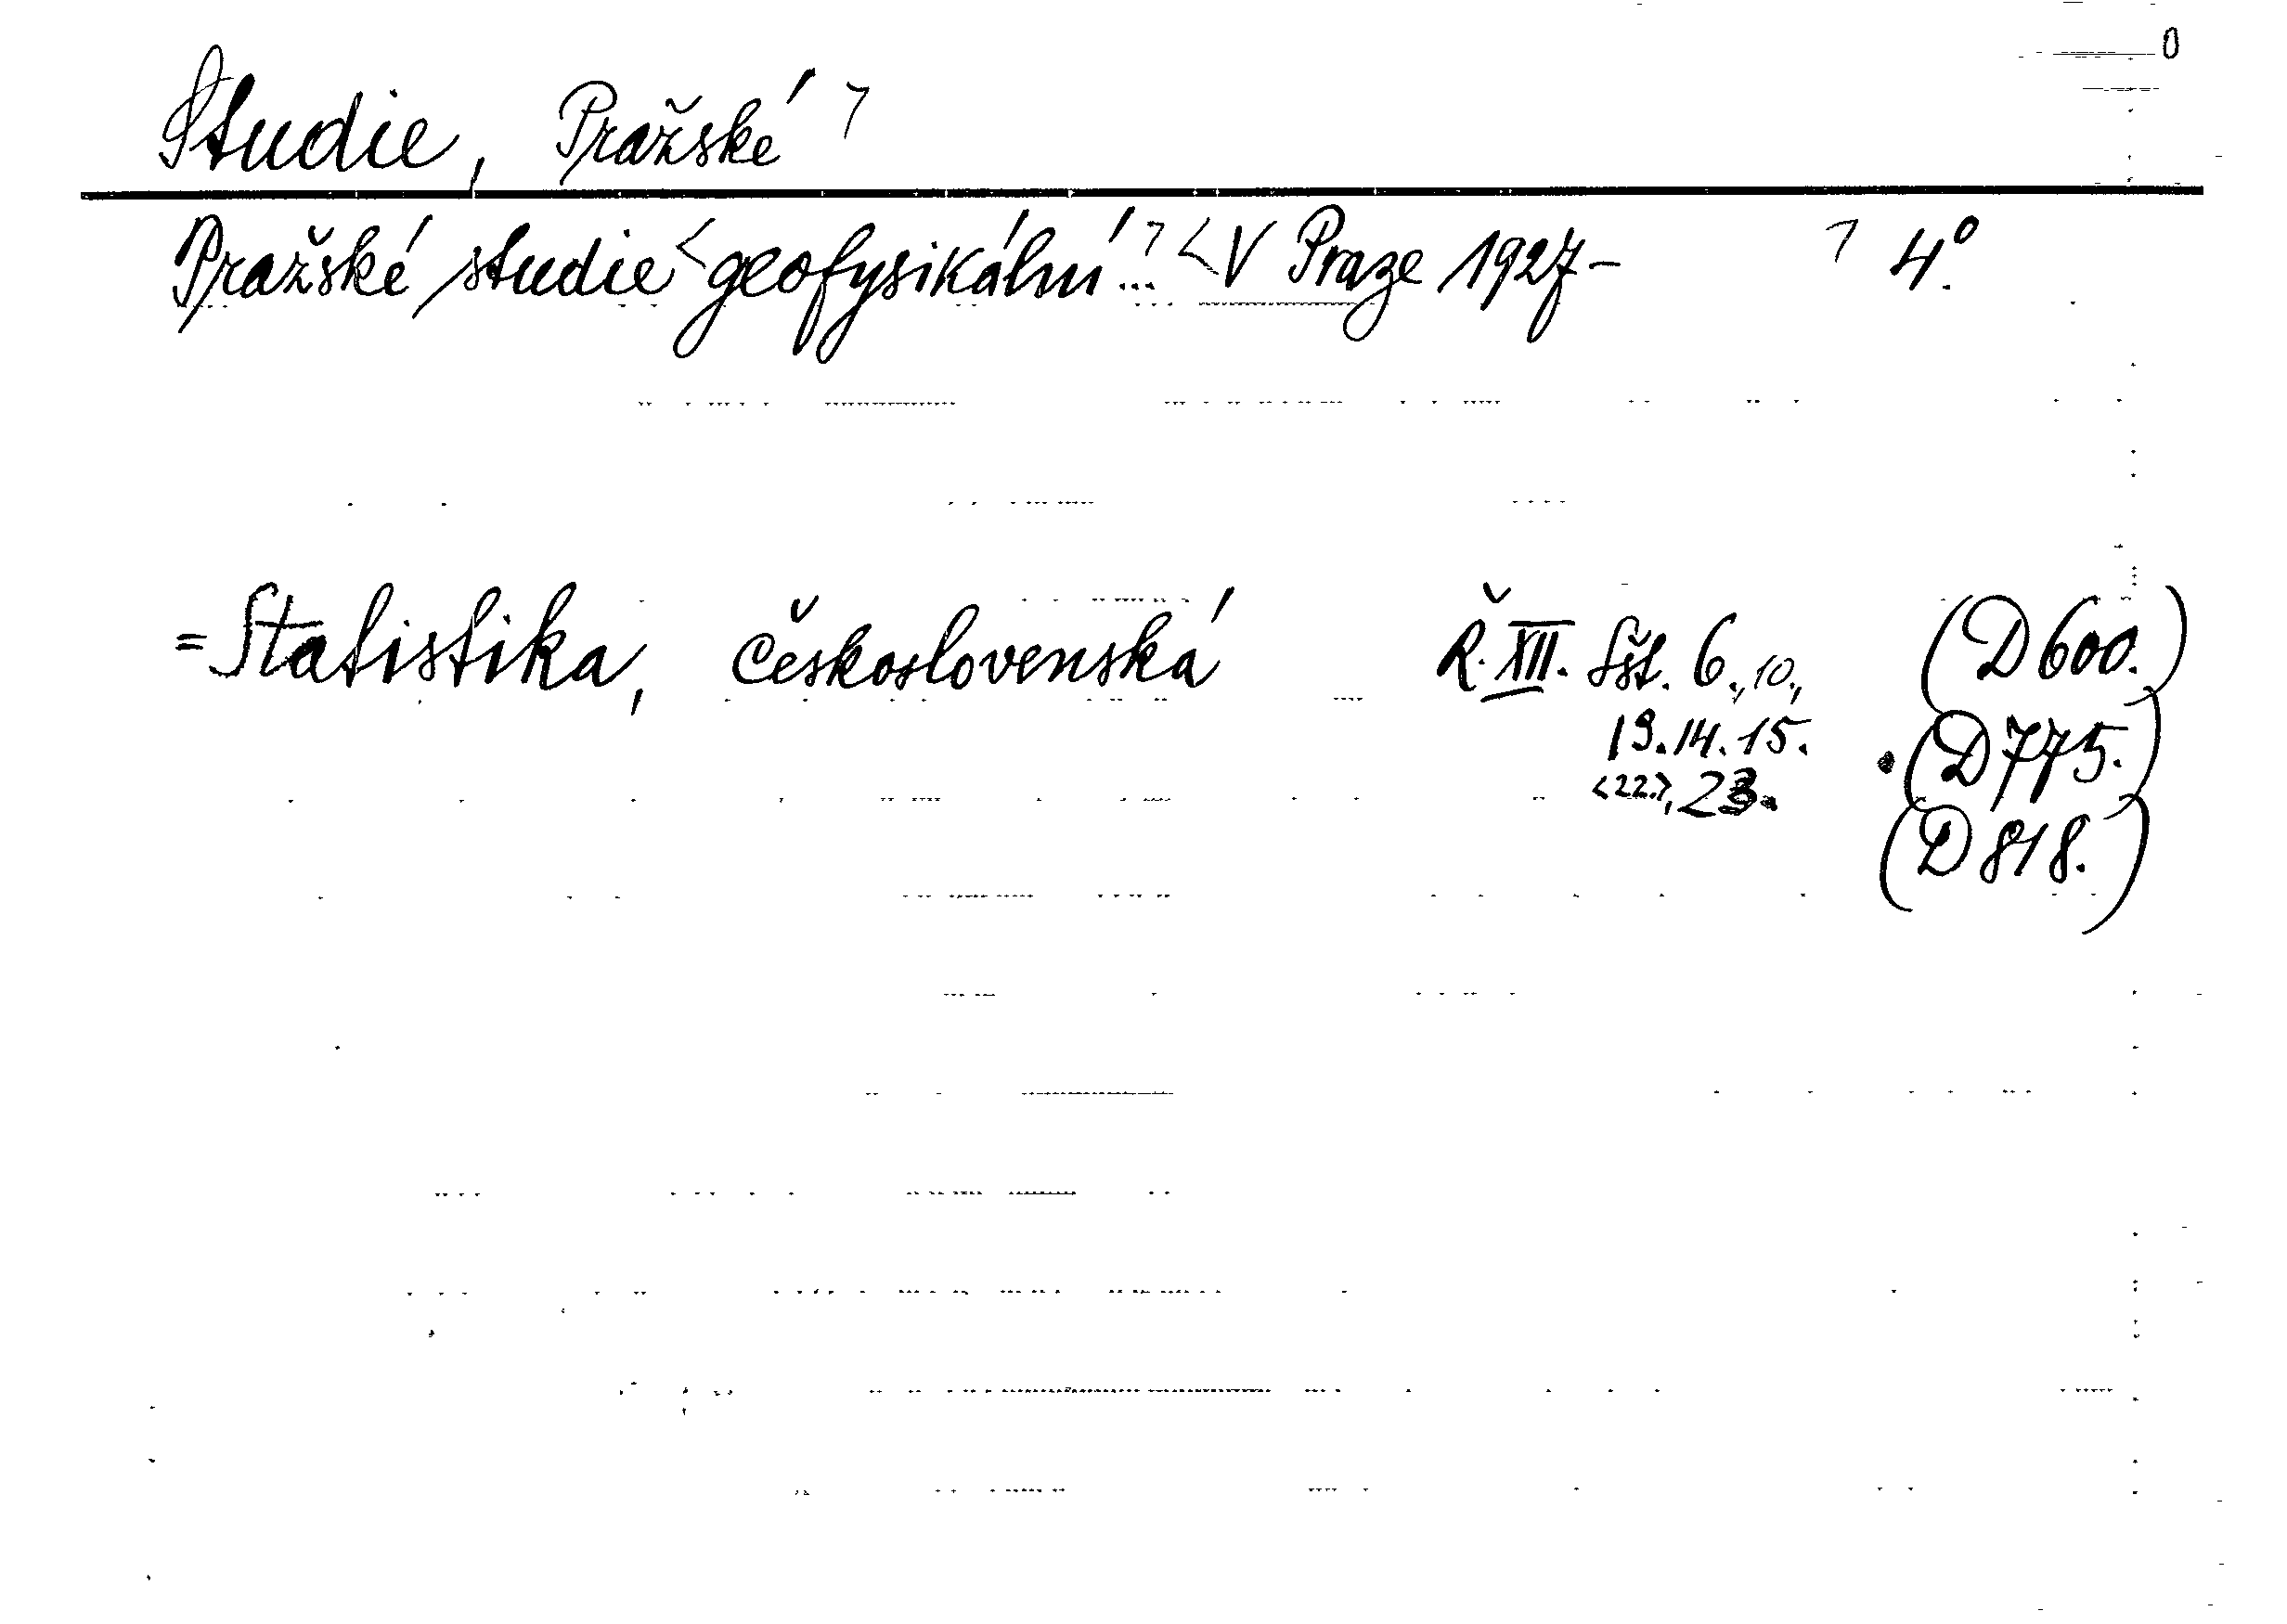 0
Studie, Pražské ⌝
Pražské studie <geofysikální...⌝ <V Praze 1927- ⌝ 4°.
= Statistika, Československá Ř. XII. Sšt. 6., 10., (D600.)
13. 14. 15. (D775.)
<22.>, 23. (D818.)